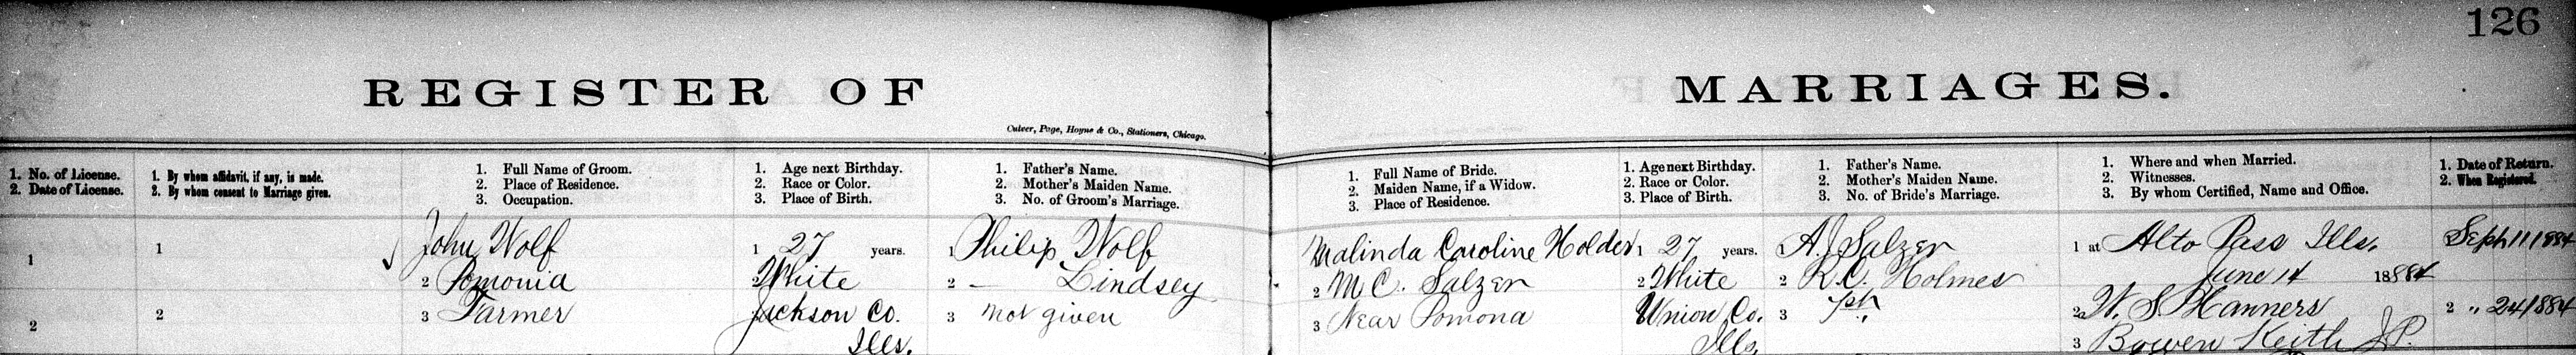 126
REGISTER OF MARRIAGES.
Culver, Page, Hoyne & Co., Stationers, Chicago.
1. No. of License.
2. Date of License.
1. By whom affidavit, if any, is made.
2. By whom consent to Marriage given.
1. Full Name of Groom.
2. Place of Residence.
3. Occupation.
1. Age next Birthday.
2. Race or Color.
3. Place of Birth.
1. Father's Name.
2. Mother's Maiden Name.
3. No. of Groom's Marriage.
1. Full Name of Bride.
2. Maiden Name, if a Widow.
3. Place of Residence.
1. Age next Birthday.
2. Race or Color.
3. Place of Birth.
1. Father's Name.
2. Mother's Maiden Name.
3. No. of Bride's Marriage.
1. Where and when Married.
2. Witnesses.
3. By whom Certified, Name and Office.
1. Date of Return.
2. When Registered.
1
2
1
2
John Wolf
2 Pomonia
3 Farmer
1 27 years.
2 White
Jackson Co.
Ills.
1 Philip Wolf
2 — Lindsey
3 not given
Malinda Caroline Holder
2 M C. Salzer
3 Near Pomona
1 27 years.
2 White
Union Co.
Ills.
A. J. Salzer
2 R. C. Holmes
3
1 at Alto Pass Ills.
June 14 1884
2 W. S. Hanners
3 Bowen Keith J.P.
Sept 11 1884
2 " 24 1884